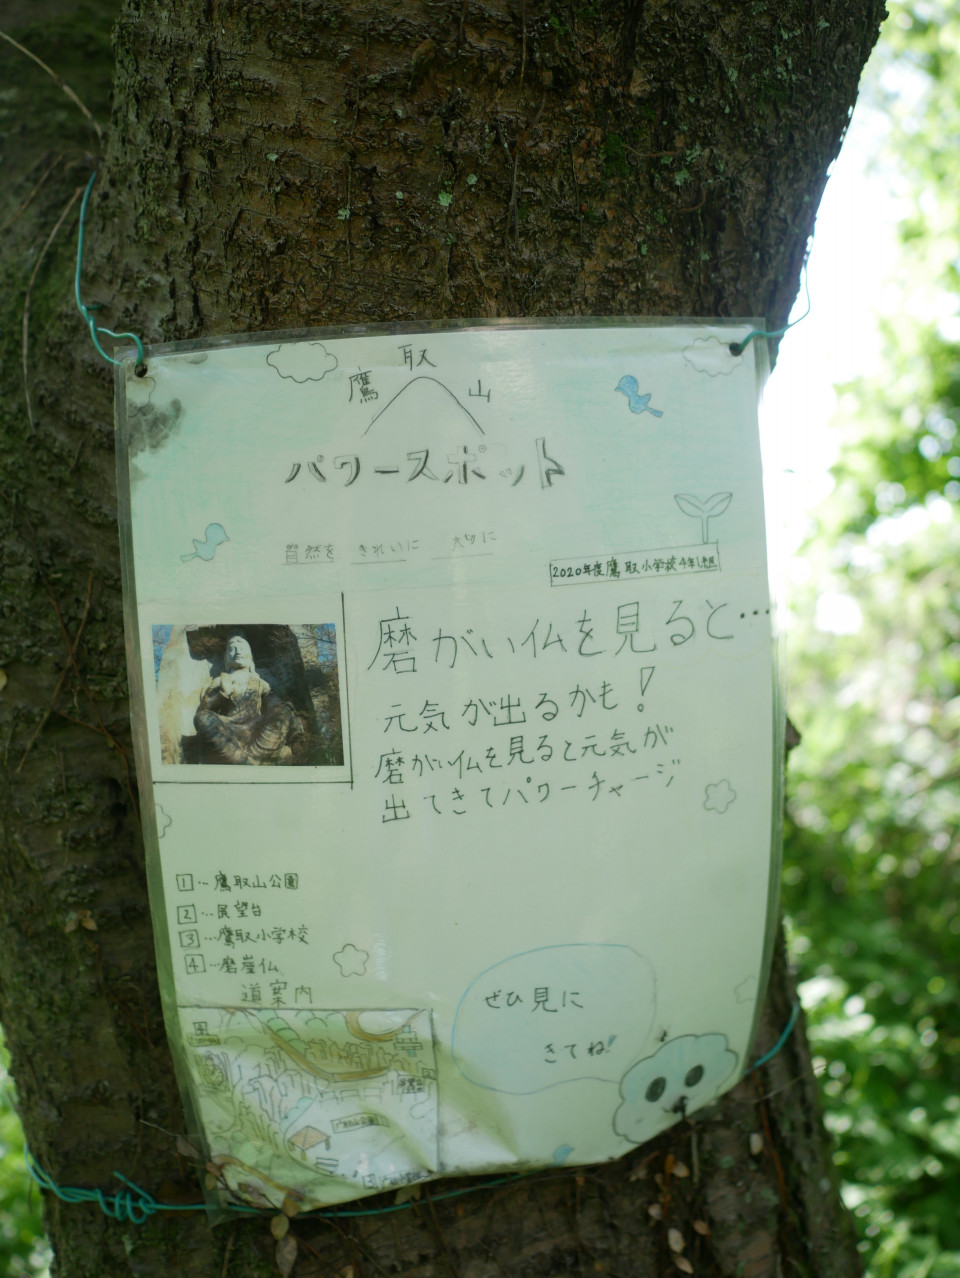 鷹取山
パワースポット
自然を きれいに 大切に
2020年度鷹取小学校4年1組
磨がい仏を見ると…
元気が出るかも!
磨がい仏を見ると元気が
出てきてパワーチャージ
1…鷹取山公園
2…展望台
3…鷹取小学校
4…磨崖仏
道案内
ぜひ見に
きてね!